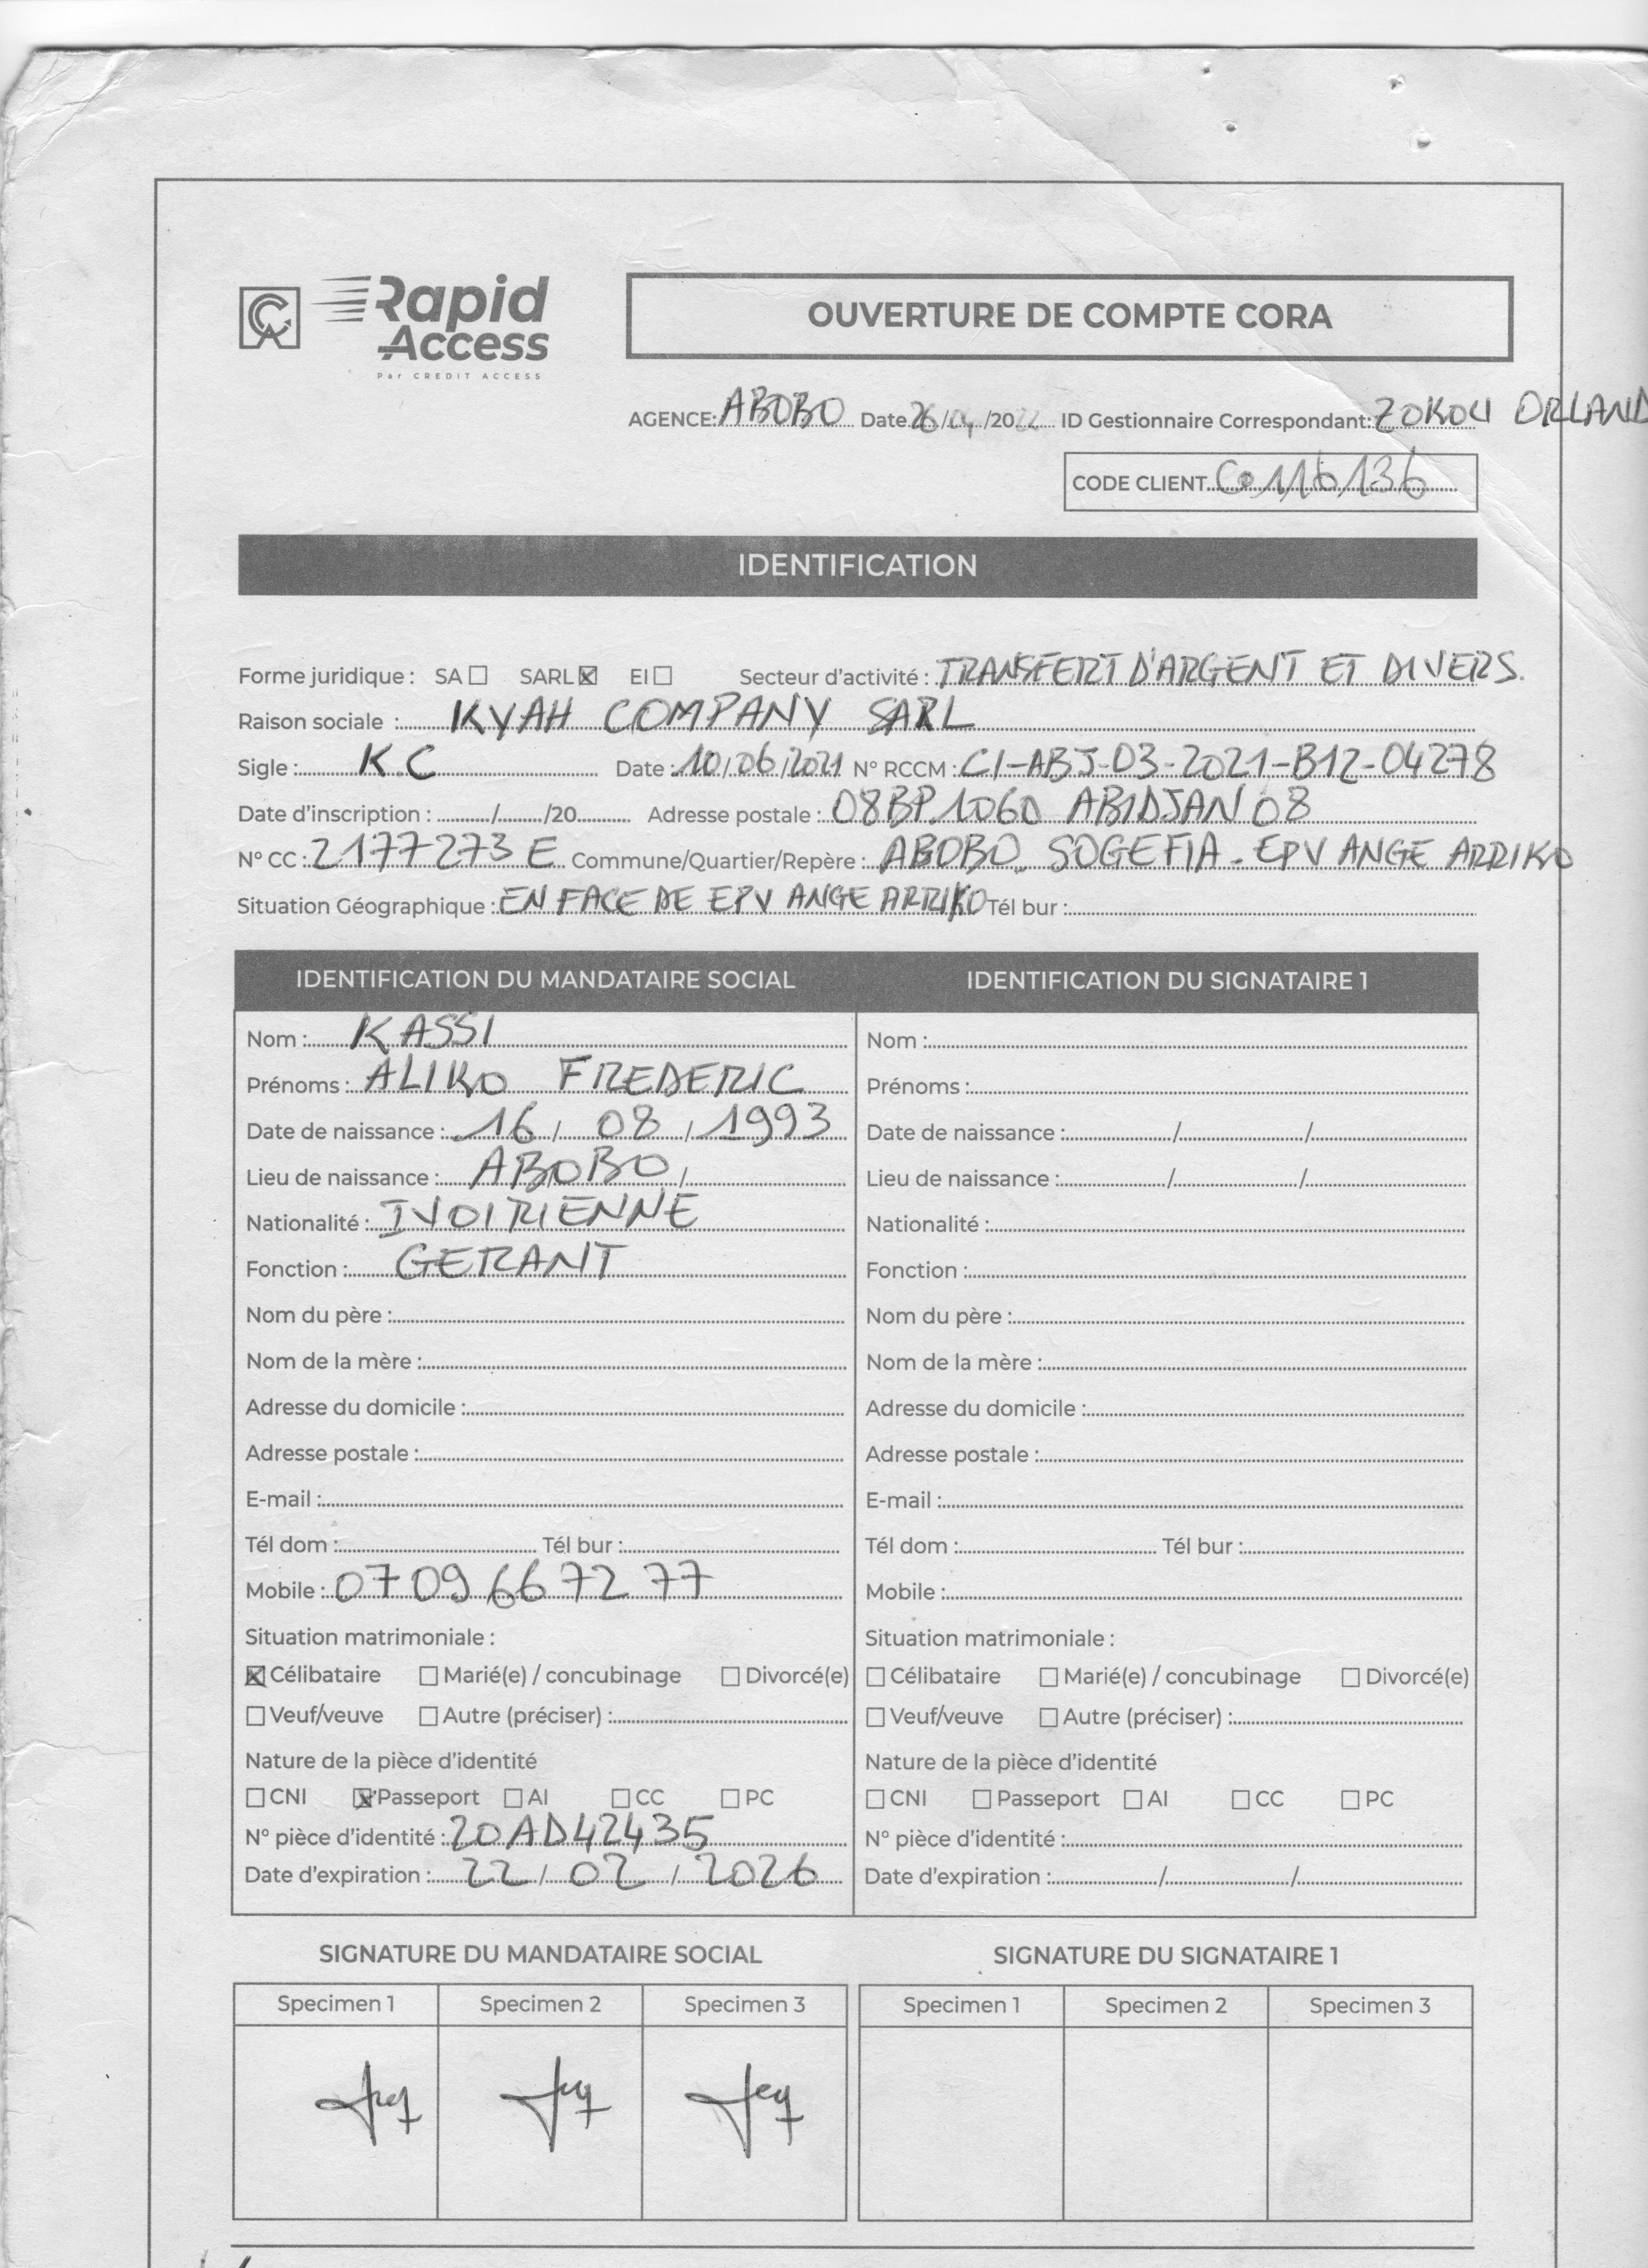 Rapid Access
Par CREDIT ACCESS
OUVERTURE DE COMPTE CORA
AGENCE: ABOBO Date 26/04/2022 ID Gestionnaire Correspondant: ZOKOU ORLAND
CODE CLIENT C0116136
IDENTIFICATION
Forme juridique : SA ☐ SARL ☒ EI ☐ Secteur d'activité : TRANSFERT D'ARGENT ET DIVERS.
Raison sociale : KYAH COMPANY SARL
Sigle : K.C Date : 10/06/2021 N° RCCM : CI-ABJ-03-2021-B12-04278
Date d'inscription : ......./......./20....... Adresse postale : 08 BP.1060 ABIDJAN 08
N° CC : 2177273 E Commune/Quartier/Repère : ABOBO SOGEFIA - EPV ANGE ARRIKO
Situation Géographique : EN FACE DE EPV ANGE ARRIKO Tél bur :
IDENTIFICATION DU MANDATAIRE SOCIAL
Nom : KASSI
Prénoms : ALIKO FREDERIC
Date de naissance : 16 / 08 / 1993
Lieu de naissance : ABOBO /
Nationalité : IVOIRIENNE
Fonction : GERANT
Nom du père :
Nom de la mère :
Adresse du domicile :
Adresse postale :
E-mail :
Tél dom : Tél bur :
Mobile : 07 09 66 72 77
Situation matrimoniale :
☒ Célibataire ☐ Marié(e) / concubinage ☐ Divorcé(e)
☐ Veuf/veuve ☐ Autre (préciser) :
Nature de la pièce d'identité
☐ CNI ☒ Passeport ☐ AI ☐ CC ☐ PC
N° pièce d'identité : 20AD42435
Date d'expiration : 22 / 02 / 2026
IDENTIFICATION DU SIGNATAIRE 1
Nom :
Prénoms :
Date de naissance : / /
Lieu de naissance : / /
Nationalité :
Fonction :
Nom du père :
Nom de la mère :
Adresse du domicile :
Adresse postale :
E-mail :
Tél dom : Tél bur :
Mobile :
Situation matrimoniale :
☐ Célibataire ☐ Marié(e) / concubinage ☐ Divorcé(e)
☐ Veuf/veuve ☐ Autre (préciser) :
Nature de la pièce d'identité
☐ CNI ☐ Passeport ☐ AI ☐ CC ☐ PC
N° pièce d'identité :
Date d'expiration : / /
SIGNATURE DU MANDATAIRE SOCIAL
Specimen 1 Specimen 2 Specimen 3
SIGNATURE DU SIGNATAIRE 1
Specimen 1 Specimen 2 Specimen 3